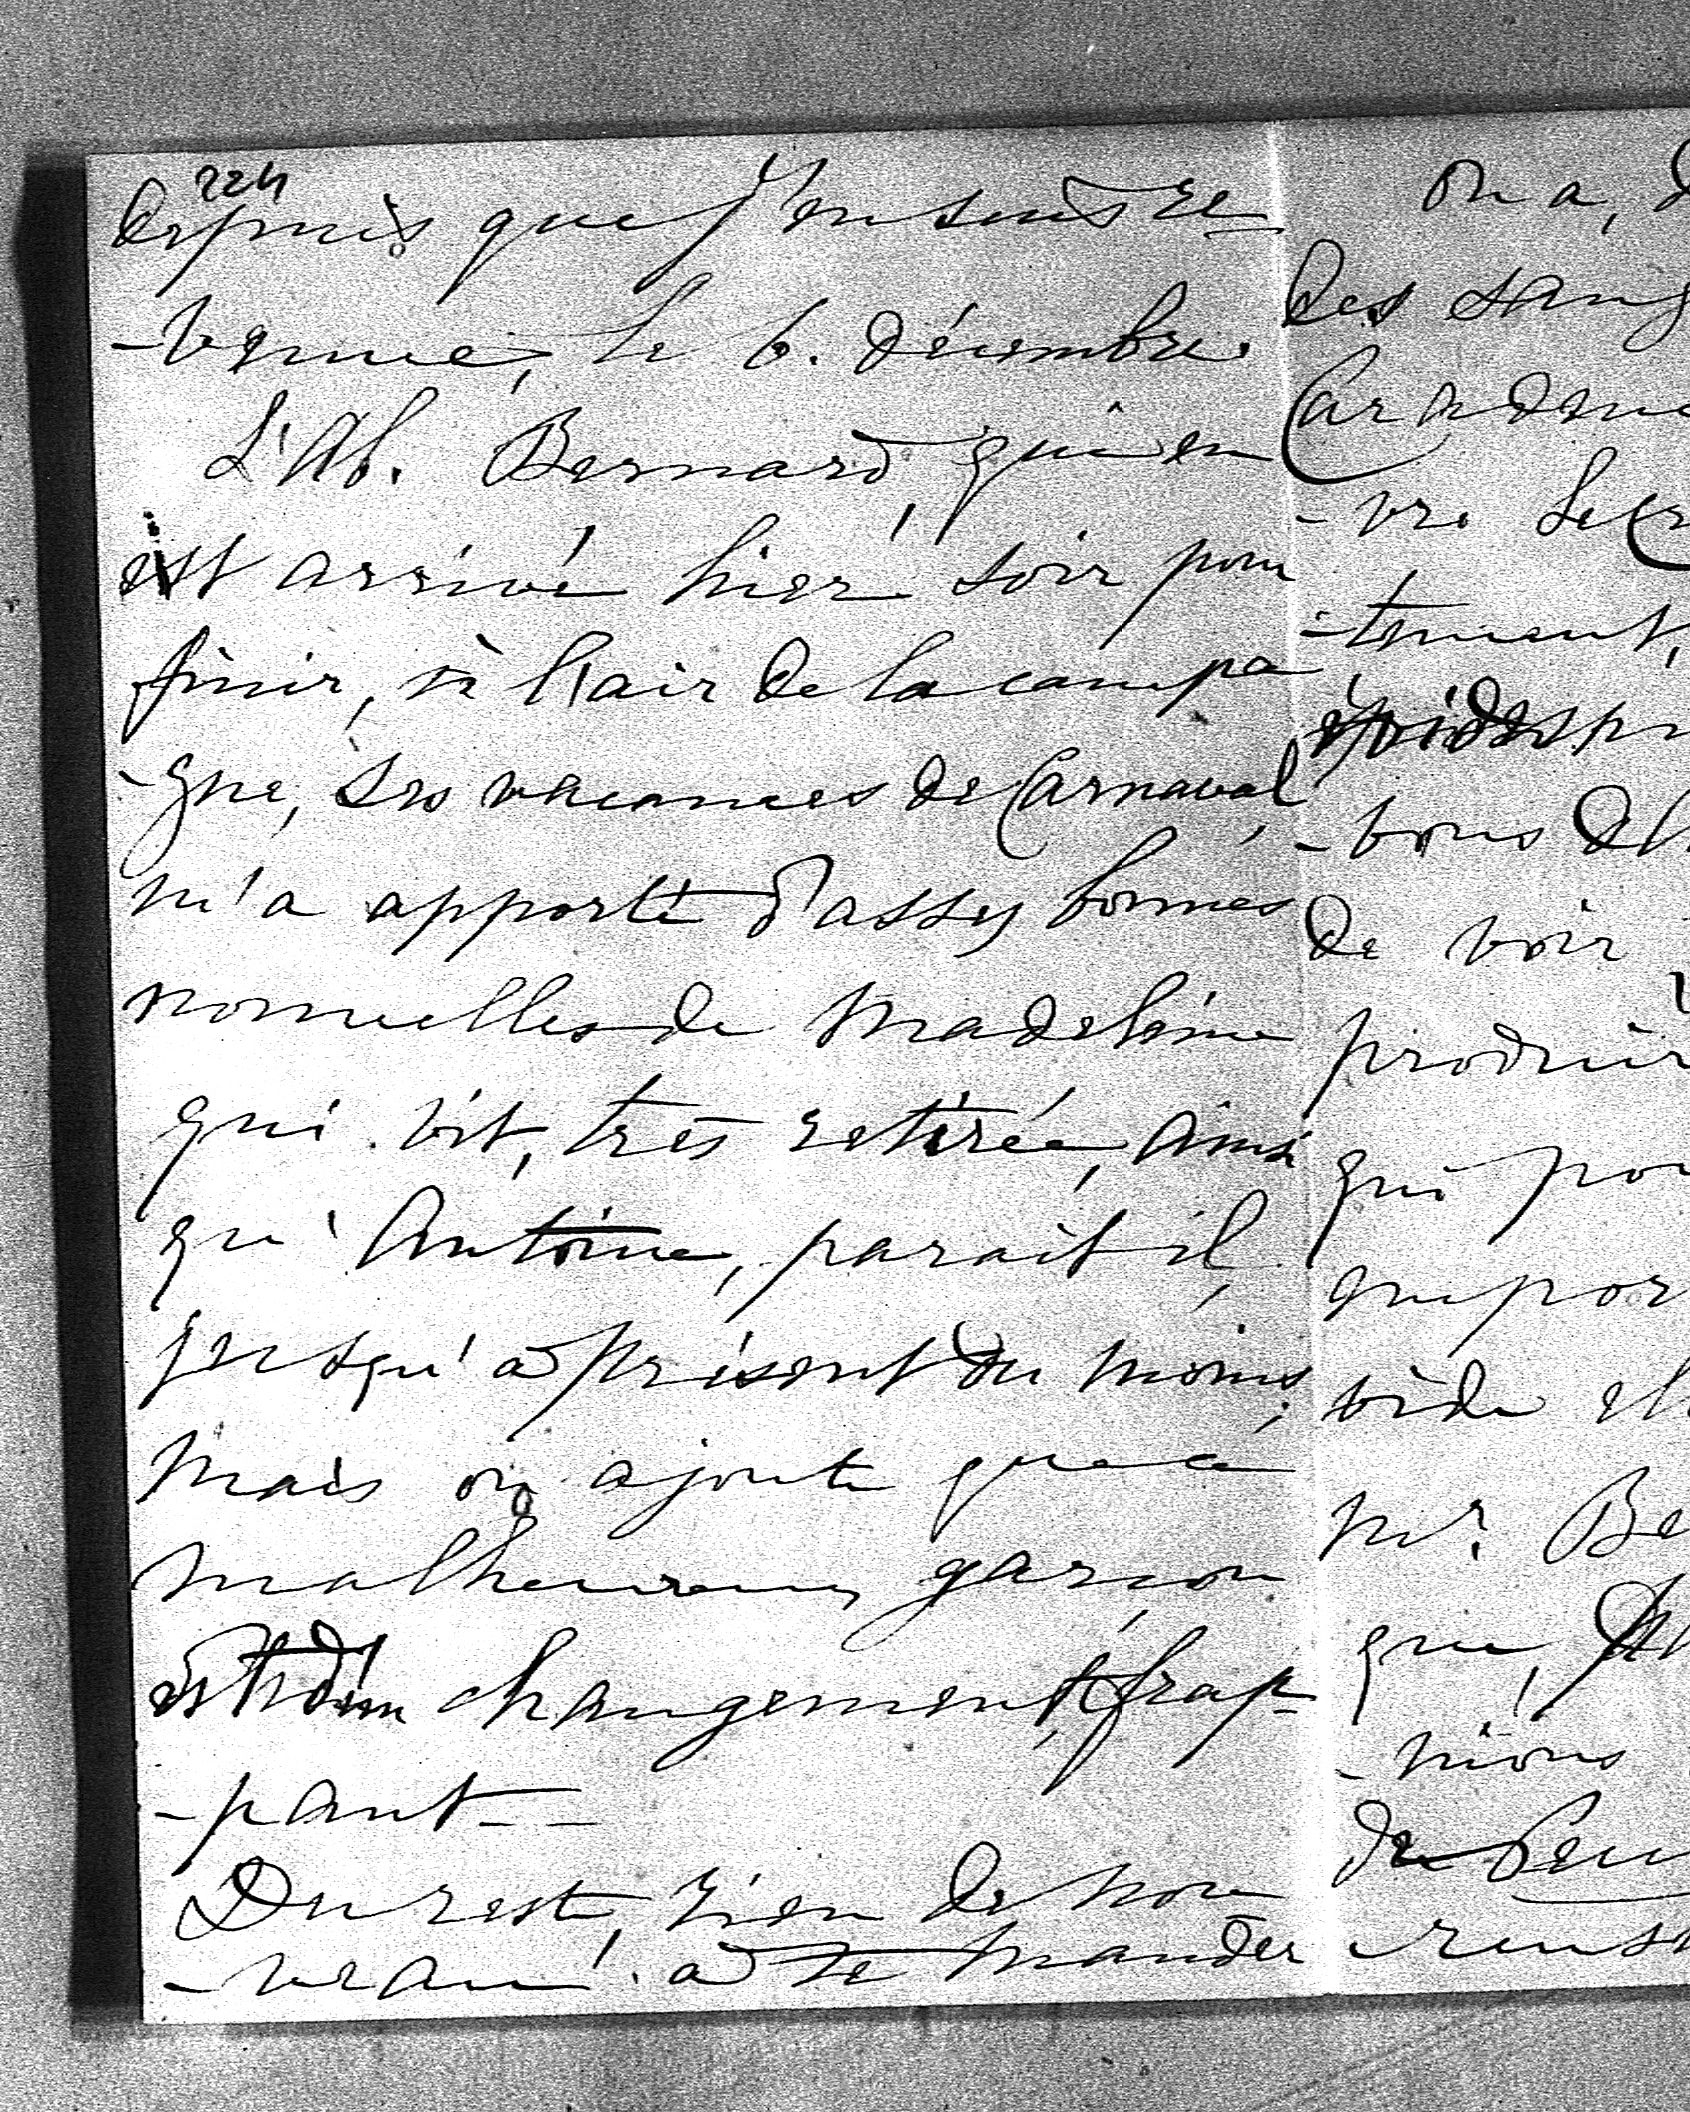 224
depuis que j'en suis re-
-venue, le 6. décembre.
L'Ab. Bernard, qui en
est arrivé hier soir pour
finir, à l'air de la campa
-gne, ses vacances de Carnaval,
m'a apporté d'assez bonnes
nouvelles de Madeleine
qui vit, très retirée, ainsi
qu'Antoine, parait il,
jusqu'à présent du moins;
mais on ajoute que ce
malheureux garçon
est d'un changement frap-
-pant--
Du reste, rien de nou
-veau à te mander
on a, d
des sang
Car
-vre
-tement,
-vons
de voir
produir
qui pou
que por
vide
Mr. Be
que,
-nions
de